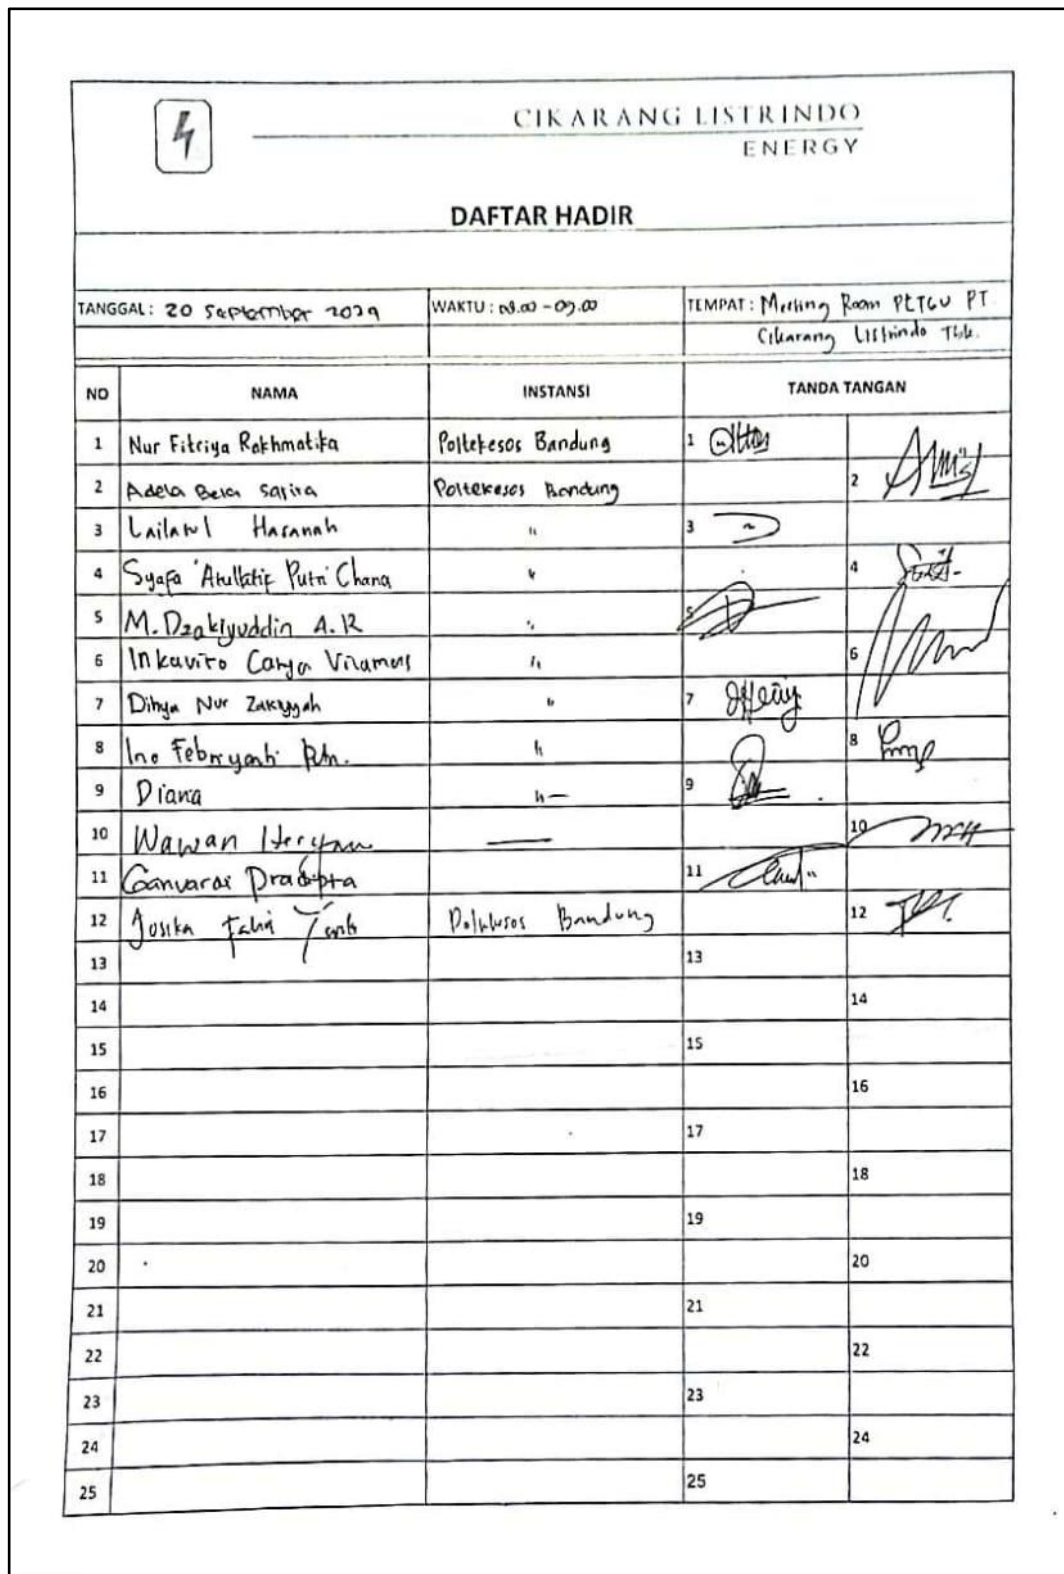 CIKARANG LISTRINDO
ENERGY
DAFTAR HADIR
TANGGAL : 20 September 2024 WAKTU : 08.00 - 09.00 TEMPAT : Meeting Room PLTGU PT
Cikarang Listrindo Tbk.
NO NAMA INSTANSI TANDA TANGAN
1 Nur Fitriya Rakhmatika Poltekesos Bandung 1
2 Adela Bela Safira Poltekesos Bandung 2
3 Lailatul Hasanah " 3
4 Syafa 'Atullatif Putri Chana " 4
5 M. Dzakiyuddin A.R " 5
6 Inkavito Cahya " 6
7 Dihya Nur Zakiyyah " 7
8 Ino Febriyanti " 8
9 Diana " 9
10 Wawan Heryan 10
11 Pradipta 11
12 Josika Bandung 12
13 13
14 14
15 15
16 16
17 17
18 18
19 19
20 20
21 21
22 22
23 23
24 24
25 25